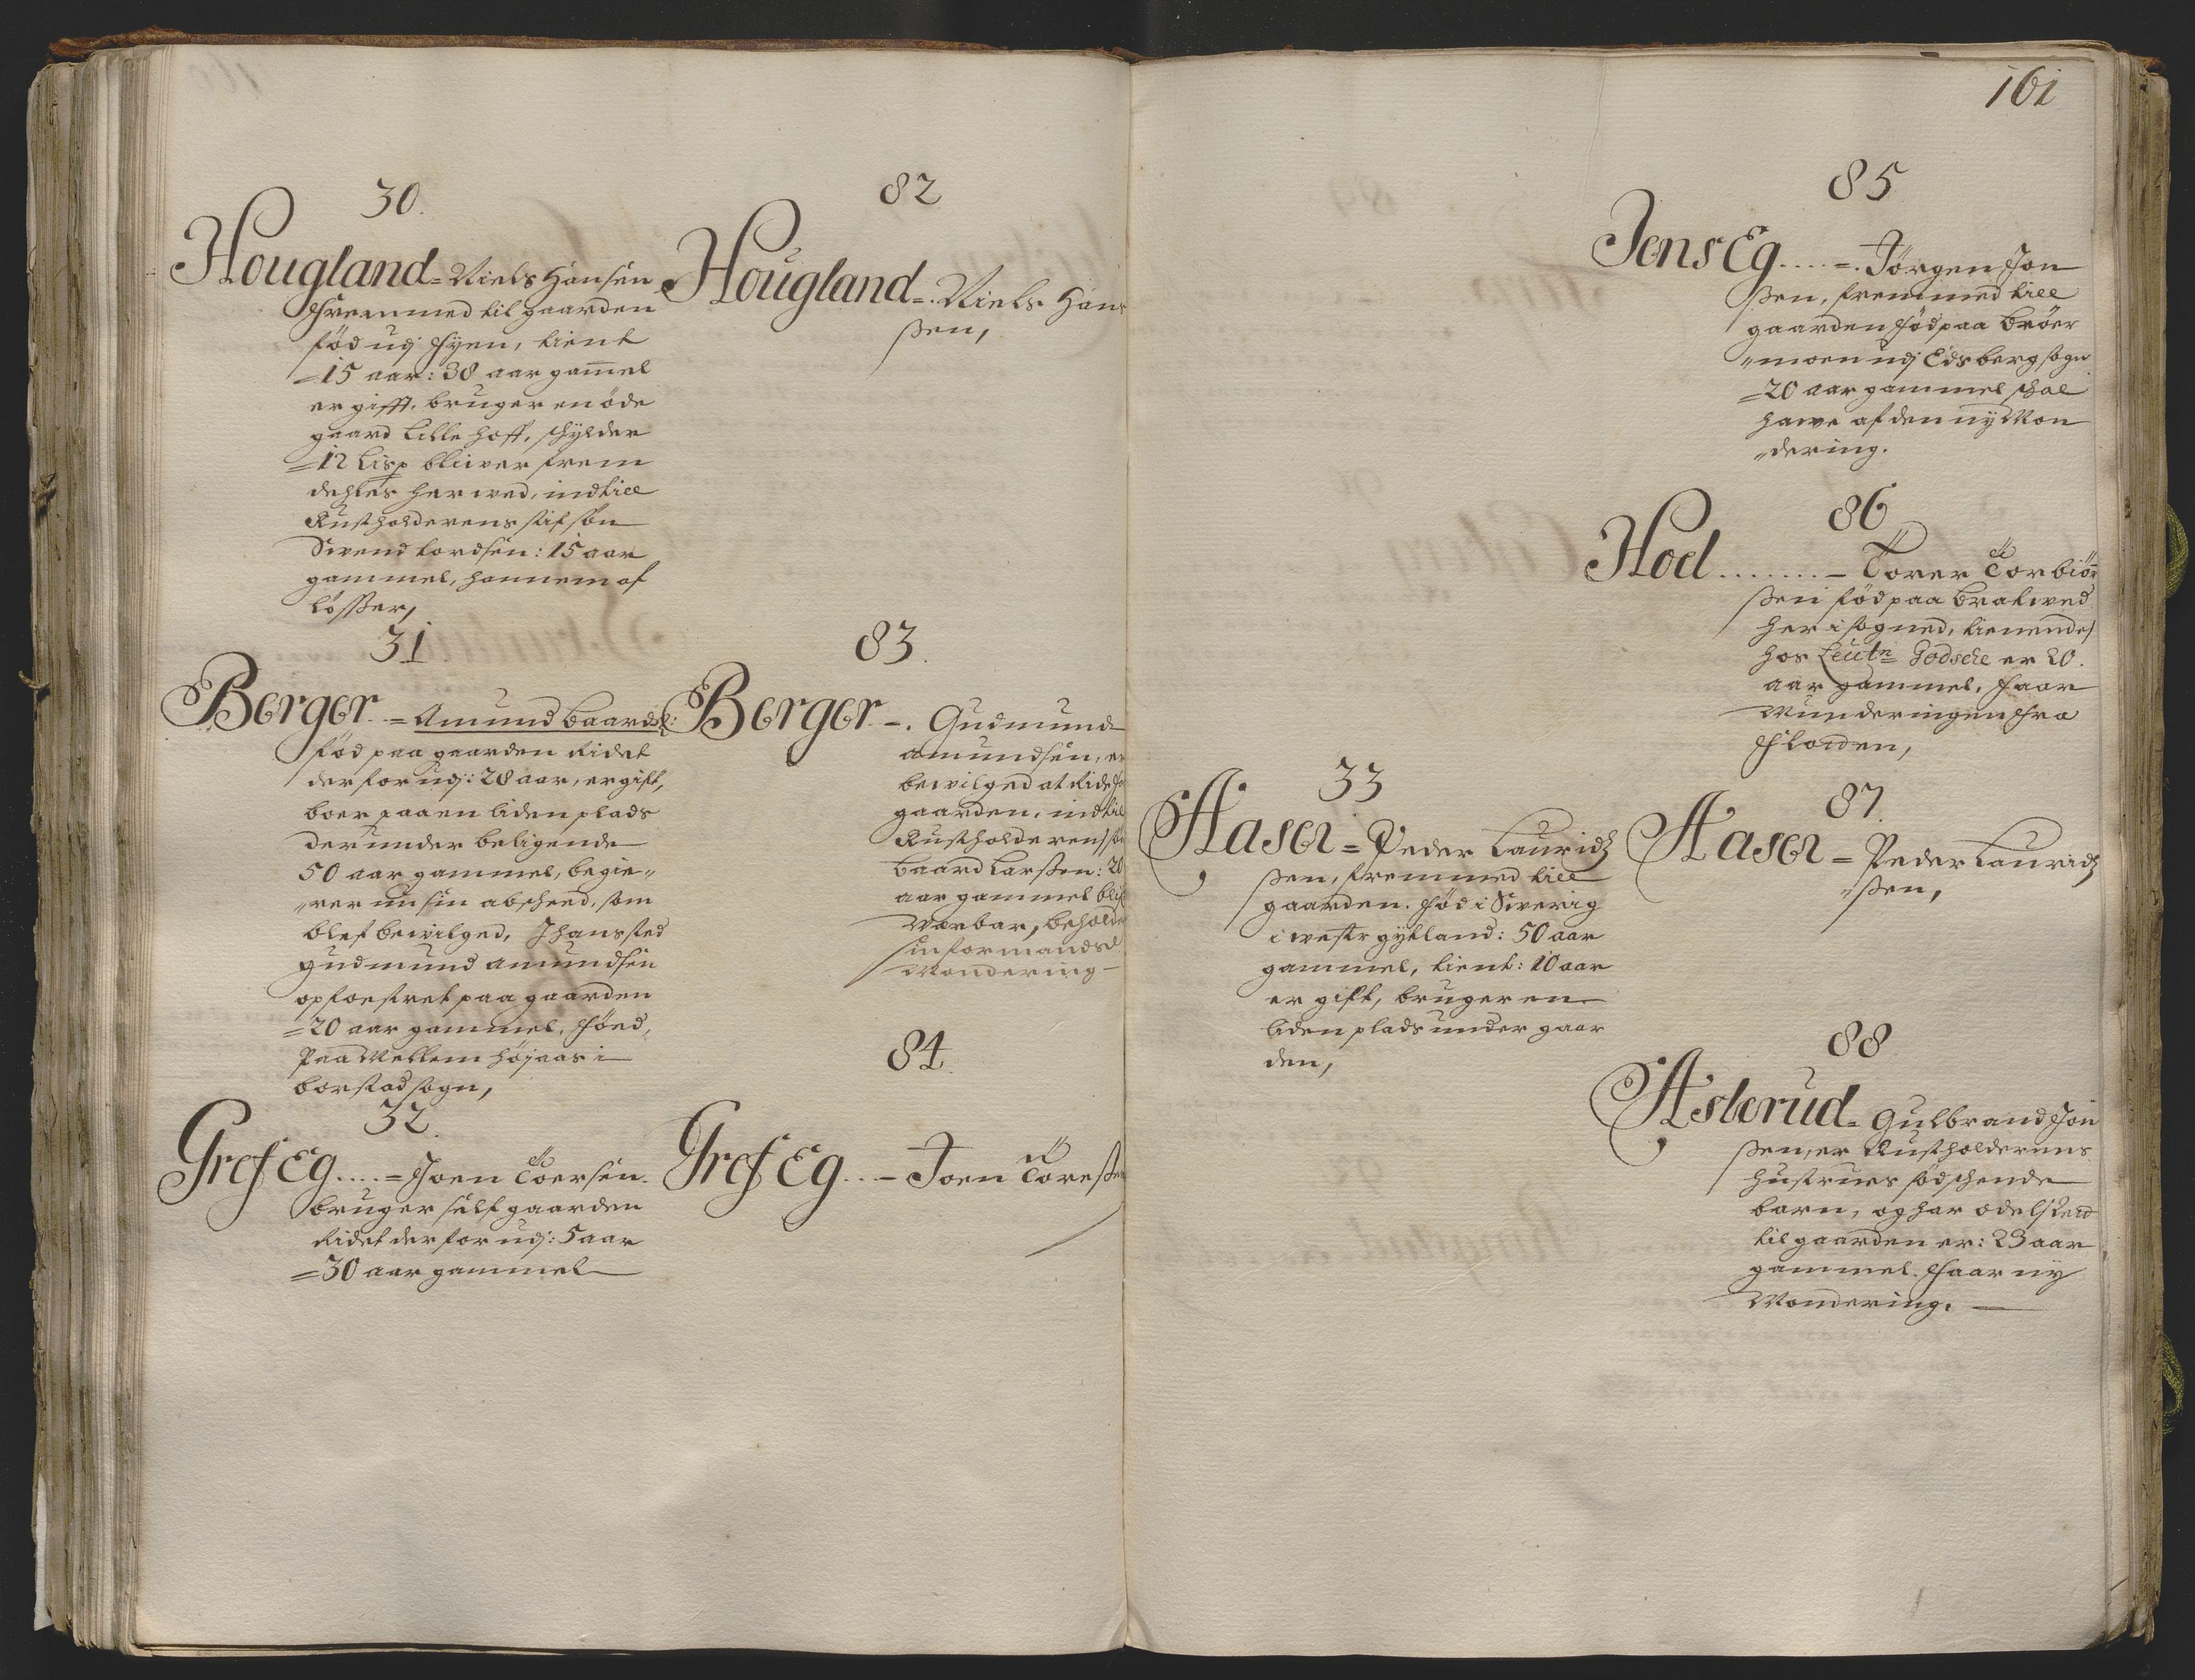 30.
Hougland = Niels Hansen
fremmed til gaarden
fød udj Fyen, tient
=15 aar: 38 aar gam̅el
er gifft, bruger en öde
gaard Lille hoff, schylder
=12 Lisp bliiver frem
dehles her ved, indtill
Rustholderens stifsön
Svend tordsen: 15 aar
gammel, hannem af
lösser,
31
Berger = Amund Baards:
fød paa gaarden Ridet
der for udj: 28 aar, er gift,
boer paa en liden plads
der under beligende
50 aar gammel, begie„
„rer nu sin abscheed, som
blef bevilged, J hans sted
gudmund amundsen
opfoestret paa gaarden
=20 aar gammel, föed,
Paa Mellem höjaas i
borstad sogn,
32.
Gref Eg .... = Joen Töersen
bruger self gaarden
Ridet der for udj: 5 aar
=30 aar gammel
82
Hougland =. Niels Hans
ßen,
83.
Berger -. Gudmund
amundsen, er
bevilged at Ride fo
gaarden, indtil
Rustholderens sön
baard Larßen: 20
aar gammel blif
Værbar, beholder
sin formands
Mondering
84.
Gref Eg ... - Joen Töreßen
161
85
Jens Eg .... =. Jörgen Jon
ßen, fremmed till
gaarden föd paa bröer
„moen udj Edsberg sogn
=20 aar gammel schal
hawe af den ny Mon
„dering.
86
Hoel ....... - Torer Torbiörn
ßen föd paa bratved
her i sogned, tienendes
hos Leutn Godsche er 20.
aar gammel, faar
Munderingen fra
Floeden,
33
Aaser = Peder Lauridz
ßen, fremmed till
gaarden. föd i Sverig
i vestr gytland: 50 aar
gammel, tient: 10 aar
er gift, bruger en
liden plads under gaar
den,
87.
Aaser = Peder Lauridz
„ßen,
88
Asterud = Gulbrand Jon
ßen, er Rustholderens
hustrues södschende
barn, og har odelsræt
til gaarden er: 23 aar
gammel. faar ny
Mondering.